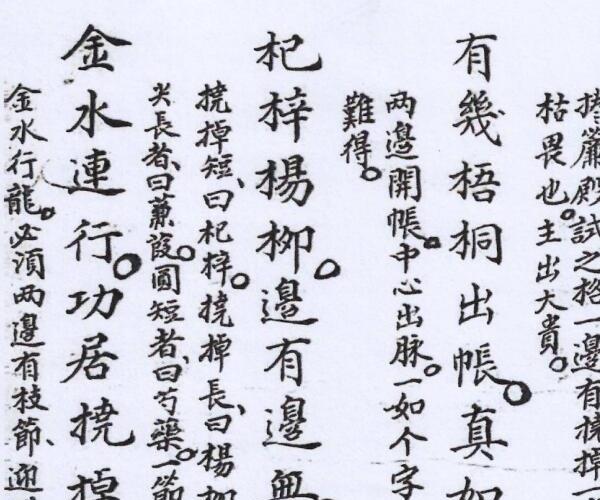 簾殿試之格一邊有撓掉
枯畏也。主出大貴。
有幾梧桐出帳。真如
两邊開帳。中心出脉。一如个字
難得。
杞梓楊柳。邊有邊無
撓掉短、曰杞梓。撓掉長、曰楊柳
尖長者、曰蒹葭。圓短者、曰芍藥。一節
金水連行。功居撓掉
金水行龍。必湏两邊有枝節、迎